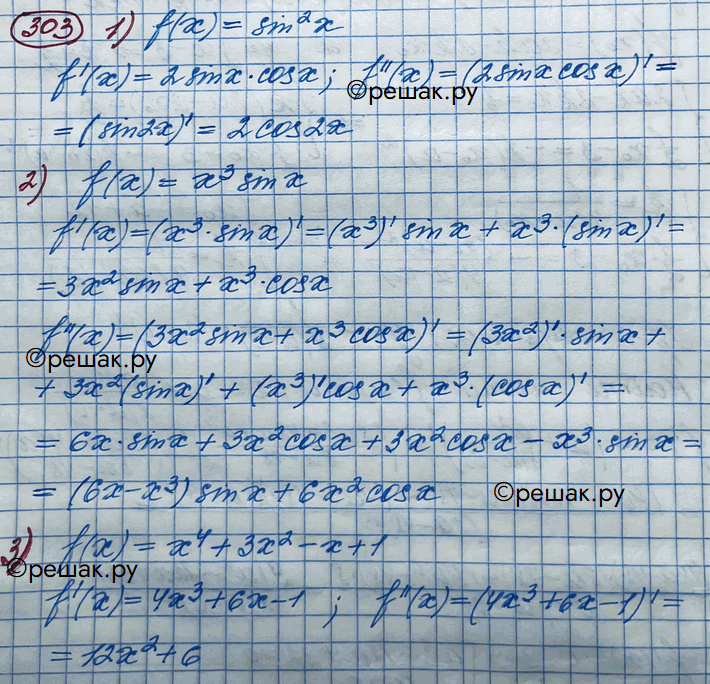 303 1) f(x) = sin²x
f'(x) = 2 sinx · cosx ; f''(x) = (2 sinx cosx)' =
©решак.ру
= (sin2x)' = 2 cos2x
2) f(x) = x³ sinx
f'(x) = (x³ · sinx)' = (x³)' sinx + x³ · (sinx)' =
= 3x² sinx + x³ · cosx
f''(x) = (3x² sinx + x³ cosx)' = (3x²)' · sinx +
©решак.ру
+ 3x² (sinx)' + (x³)' cosx + x³ · (cosx)' =
= 6x · sinx + 3x² cosx + 3x² cosx − x³ · sinx =
= (6x − x³) sinx + 6x² cosx ©решак.ру
3) f(x) = x⁴ + 3x² − x + 1
©решак.ру
f'(x) = 4x³ + 6x − 1 ; f''(x) = (4x³ + 6x − 1)' =
= 12x² + 6